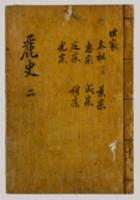 世家
太祖 二 景宗
惠宗 成宗
定宗 穆宗
光宗
麗史 二